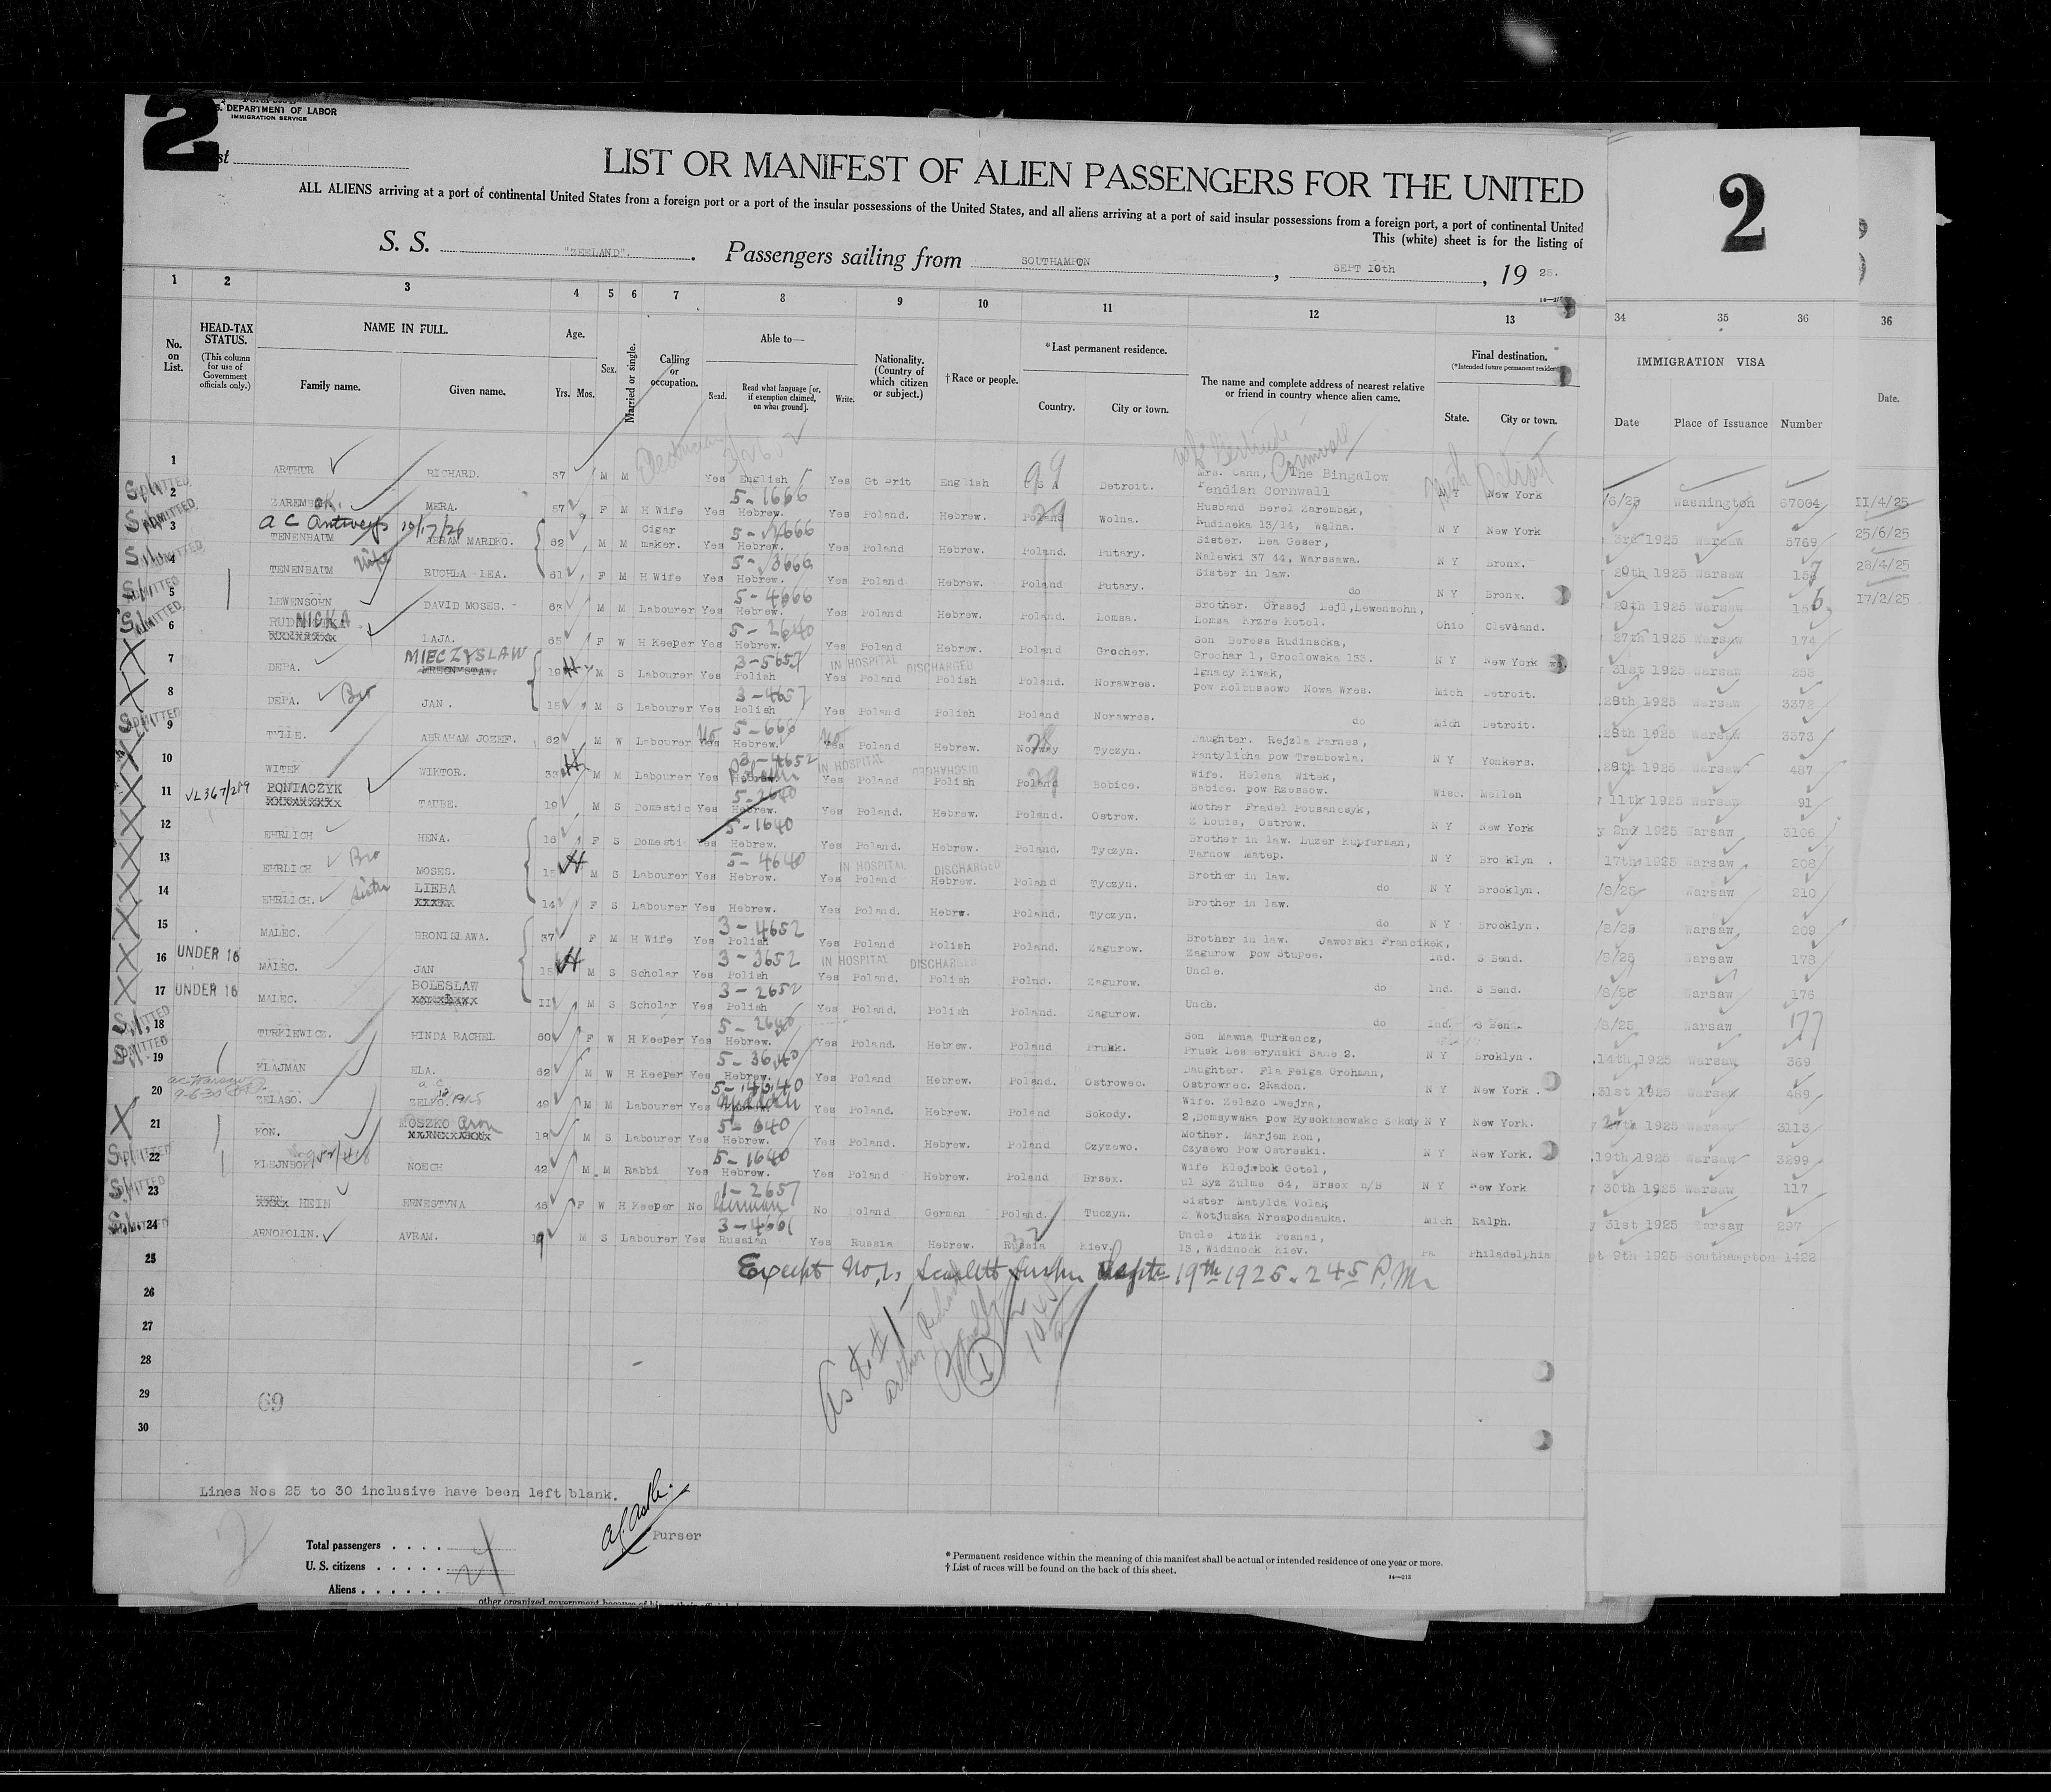 2
S. DEPARTMENT OF LABOR
IMMIGRATION SERVICE
st
LIST OR MANIFEST OF ALIEN PASSENGERS FOR THE UNITED
ALL ALIENS arriving at a port of continental United States from a foreign port or a port of the insular possessions of the United States, and all aliens arriving at a port of said insular possessions from a foreign port, a port of continental United
This (white) sheet is for the listing of
S. S. "ZEELAND". Passengers sailing from SOUTHAMPTON, SEPT 10th, 19 25.
2
1 2 3 4 5 6 7 8 9 10 11 12 13 34 35 36 36
No. on List.
HEAD-TAX STATUS.
(This column for use of Government officials only.)
NAME IN FULL.
Family name. Given name.
Age.
Yrs. Mos.
Sex.
Married or single.
Calling or occupation.
Able to—
Read. Read what language [or, if exemption claimed, on what ground]. Write.
Nationality. (Country of which citizen or subject.)
†Race or people.
*Last permanent residence.
Country. City or town.
The name and complete address of nearest relative or friend in country whence alien came.
Final destination.
(*Intended future permanent residence)
State. City or town.
IMMIGRATION VISA
Date Place of Issuance Number
Date.
1 ARTHUR RICHARD. 37 M M Electrician Yes English Yes Gt Brit English U S A Detroit. Mrs. Cann, The Bingalow Cornwall New York /6/25 Washington 67004 II/4/25
2 ADMITTED. MERA. 57 F M H Wife Yes Hebrew. Yes Poland. Hebrew. Poland Wolna. Husband Berel Zarembak, Rudineka 13/14, Walna. N Y New York 3rd 1925 Warsaw 5769 25/6/25
5-1666
a c Antwerp 10/17/26
3 ADMITTED. TENENBAUM ABRAM MARDKO. 62 M M Cigar maker. Yes Hebrew. Yes Poland Hebrew. Poland. Putary. Sister. Lea Geser, Nalewki 37 44, Warssawa. N Y Bronx. 20th 1925 Warsaw 28/4/25
4 ADMITTED TENENBAUM Wife RUCHLA LEA. 61 F M H Wife Yes Hebrew. Yes Poland Hebrew. Poland Putary. Sister in law. do N Y Bronx. 20th 1925 Warsaw 17/2/25
5-3666
5 ADMITTED LEWENSOHN DAVID MOSES. 63 M M Labourer Yes Hebrew. Yes Poland Hebrew. Poland Lomsa. Brother. Lejl,Lewensohn, Lomsa Krzre Kotel. Ohio Cleveland. 27th 1925 Warsaw 174
5-4666
6 ADMITTED. LAJA. 65 F W H Keeper Yes Hebrew. Yes Poland Hebrew. Poland Grocher. Son Beress Rudinscka, Grochar 1, Groclowska 133. N Y New York 31st 1925 Warsaw 258
5-2640
7 DEPA. MIECZYSLAW 19 M S Labourer Yes Polish Yes Poland Polish Poland. Norawres. Ignacy Kiwak, pow Kolbussows Nowa Wres. Mich Detroit. 28th 1925 Warsaw 3372
3-5657
IN HOSPITAL DISCHARGED
8 DEPA. Bro JAN. 15 M S Labourer Yes Polish Yes Poland Polish Poland Norawres. do Mich Detroit. 28th 1925 Warsaw 3373
3-4657
9 ADMITTED TULLE. ABRAHAM JOZEF. 62 M W Labourer No Hebrew. No Poland Hebrew. Norway Tyczyn. Daughter. Rejzla Parnes, Pantylicha pow Trembowla. N Y Yonkers. 28th 1925 Warsaw 487
5-666
10 WITEK WIKTOR. 33 M M Labourer Yes Polish Yes Poland Polish Poland Bobice. Wife. Helena Witek, Babice. pow Rzessow. Wisc. Mellen 11th 1925 Warsaw 91
3-4652
IN HOSPITAL DISCHARGED
11 PONIACZYK TAUBE. 19 M S Domestic Yes Hebrew. Yes Poland. Hebrew. Poland. Ostrow. Mother Fradel Pousanczyk, 2 Louis, Ostrow. N Y New York 2nd 1925 Warsaw 3106
5-2640
12 EHRLICH HENA. 16 F S Domesti Yes Yes Poland. Hebrew. Poland. Tyczyn. Brother in law. Luzer Kupferman, Tarnow Matep. N Y Bro klyn. 17th 1925 Warsaw 208
5-1640
13 EHRLICH Bro MOSES. 15 M S Labourer Yes Hebrew. Yes Poland Hebrew. Poland Tyczyn. Brother in law. do N Y Brooklyn. /8/25 Warsaw 210
5-4640
IN HOSPITAL DISCHARGED
14 EHRLICH. Sister LIEBA 14 F S Labourer Yes Hebrew. Yes Poland. Hebrw. Poland. Tyczyn. Brother in law. do N Y Brooklyn. /8/25 Warsaw 209
15 MALEC. BRONISLAWA. 37 F M H Wife Yes Polish Yes Poland Polish Poland. Zagurow. Brother in law. Jaworski Francikek, Zagurow pow Stupee. Ind. S Bend. /8/25 Warsaw 178
3-4652
16 UNDER 16 MALEC. JAN 15 M S Scholar Yes Polish Yes Poland. Polish Polnd. Zagurow. Uncle. do Ind. S Bend. /8/25 Warsaw 176
3-3652
IN HOSPITAL DISCHARGED
17 UNDER 16 MALEC. BOLESLAW II M S Scholar Yes Polish Yes Poland. Polish Poland. Zagurow. Uncle. do Ind. S Bend. /8/25 Warsaw 177
3-2652
18 ADMITTED TURKIEWICZ. HINDA RACHEL 60 F W H Keeper Yes Hebrew. Yes Poland. Hebrew. Poland Prusk. Son Mawna Turkencz, Prusk Leszerynski Sane 2. N Y Broklyn. 14th 1925 Warsaw 369
5-2640
19 ADMITTED KLAJMAN ELA. 62 M W H Keeper Yes Hebrew. Yes Poland Hebrew. Poland. Ostrowec. Daughter. Fla Feiga Grohman, Ostrowrec. 2Radon. N Y New York. 31st 1925 Warsaw 489
5-3640
20 ac Warsaw 9-6-30 ZELASO. 49 M M Labourer Yes Yiddish Yes Poland. Hebrew. Poland Sokody. Wife. Zelazo Dwejra, 2,Domsywska pow Hysokmsowsko Sokody N Y New York. 27th 1925 Warsaw 3113
21 KON. MOSZKO Aron 18 M S Labourer Yes Hebrew. Yes Poland. Hebrew. Poland Czyzewo. Mother. Marjem Kon, Czysewo Pow Ostreski. N Y New York. 19th 1925 Warsaw 3299
5-640
22 ADMITTED NOECH 42 M M Rabbi Yes Hebrew. Yes Poland Hebrew. Poland Brsex. Wife Klejnbok Gotel, ul Syz Zulme 64, Brsex n/B N Y New York 30th 1925 Warsaw 117
5-1640
23 ADMITTED HEIN ERNESTYNA 48 F W H Keeper No German No Poland German Poland. Tuczyn. Sister Matylda Volak 2 Wotjuska Nrespodnauka. Mich Ralph. 31st 1925 Warsaw 297
1-2657
24 ADMITTED ARNOPOLIN. AVRAM. 19 M S Labourer Yes Russian Yes Russia Hebrew. Russia Kiev. Uncle Itzik Posnai, 13, Widinock Kiev. Pa Philadelphia pt 9th 1925 Southampton 1422
3-4661
25 Except No, 1, Sept 19th 1925. 2 45 P.M.
26
27
28
29
30
69
Lines Nos 25 to 30 inclusive have been left blank.
Purser
Total passengers . . . .
U. S. citizens . . . . .
Aliens . . . . . . 24
* Permanent residence within the meaning of this manifest shall be actual or intended residence of one year or more.
† List of races will be found on the back of this sheet.